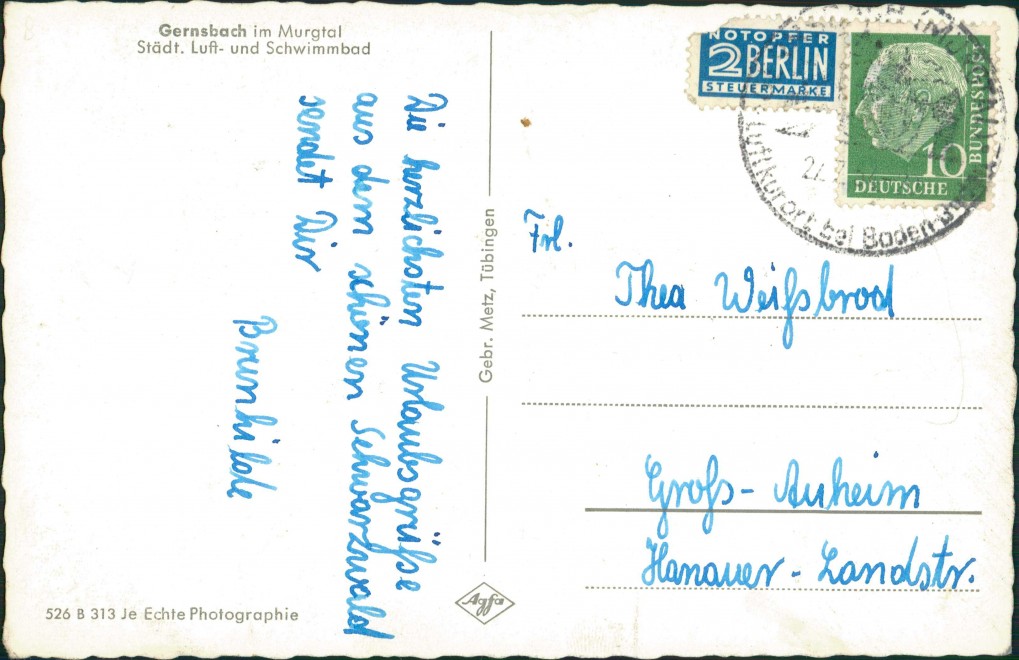 Gernsbach im Murgtal
Städt. Luft- und Schwimmbad
Die herzlichsten Urlaubsgrüße
aus dem schönen Schwarzwald
sendet Dir
Brunhilde
526 B 313 Je Echte Photographie
Gebr. Metz, Tübingen
Agfa
NOTOPFER
2 BERLIN
STEUERMARKE
10
DEUTSCHE
BUNDESPOST
Luftkurort bei Baden-
Frl.
Thea Weißbrod
Groß-Auheim
Hanauer-Landstr.